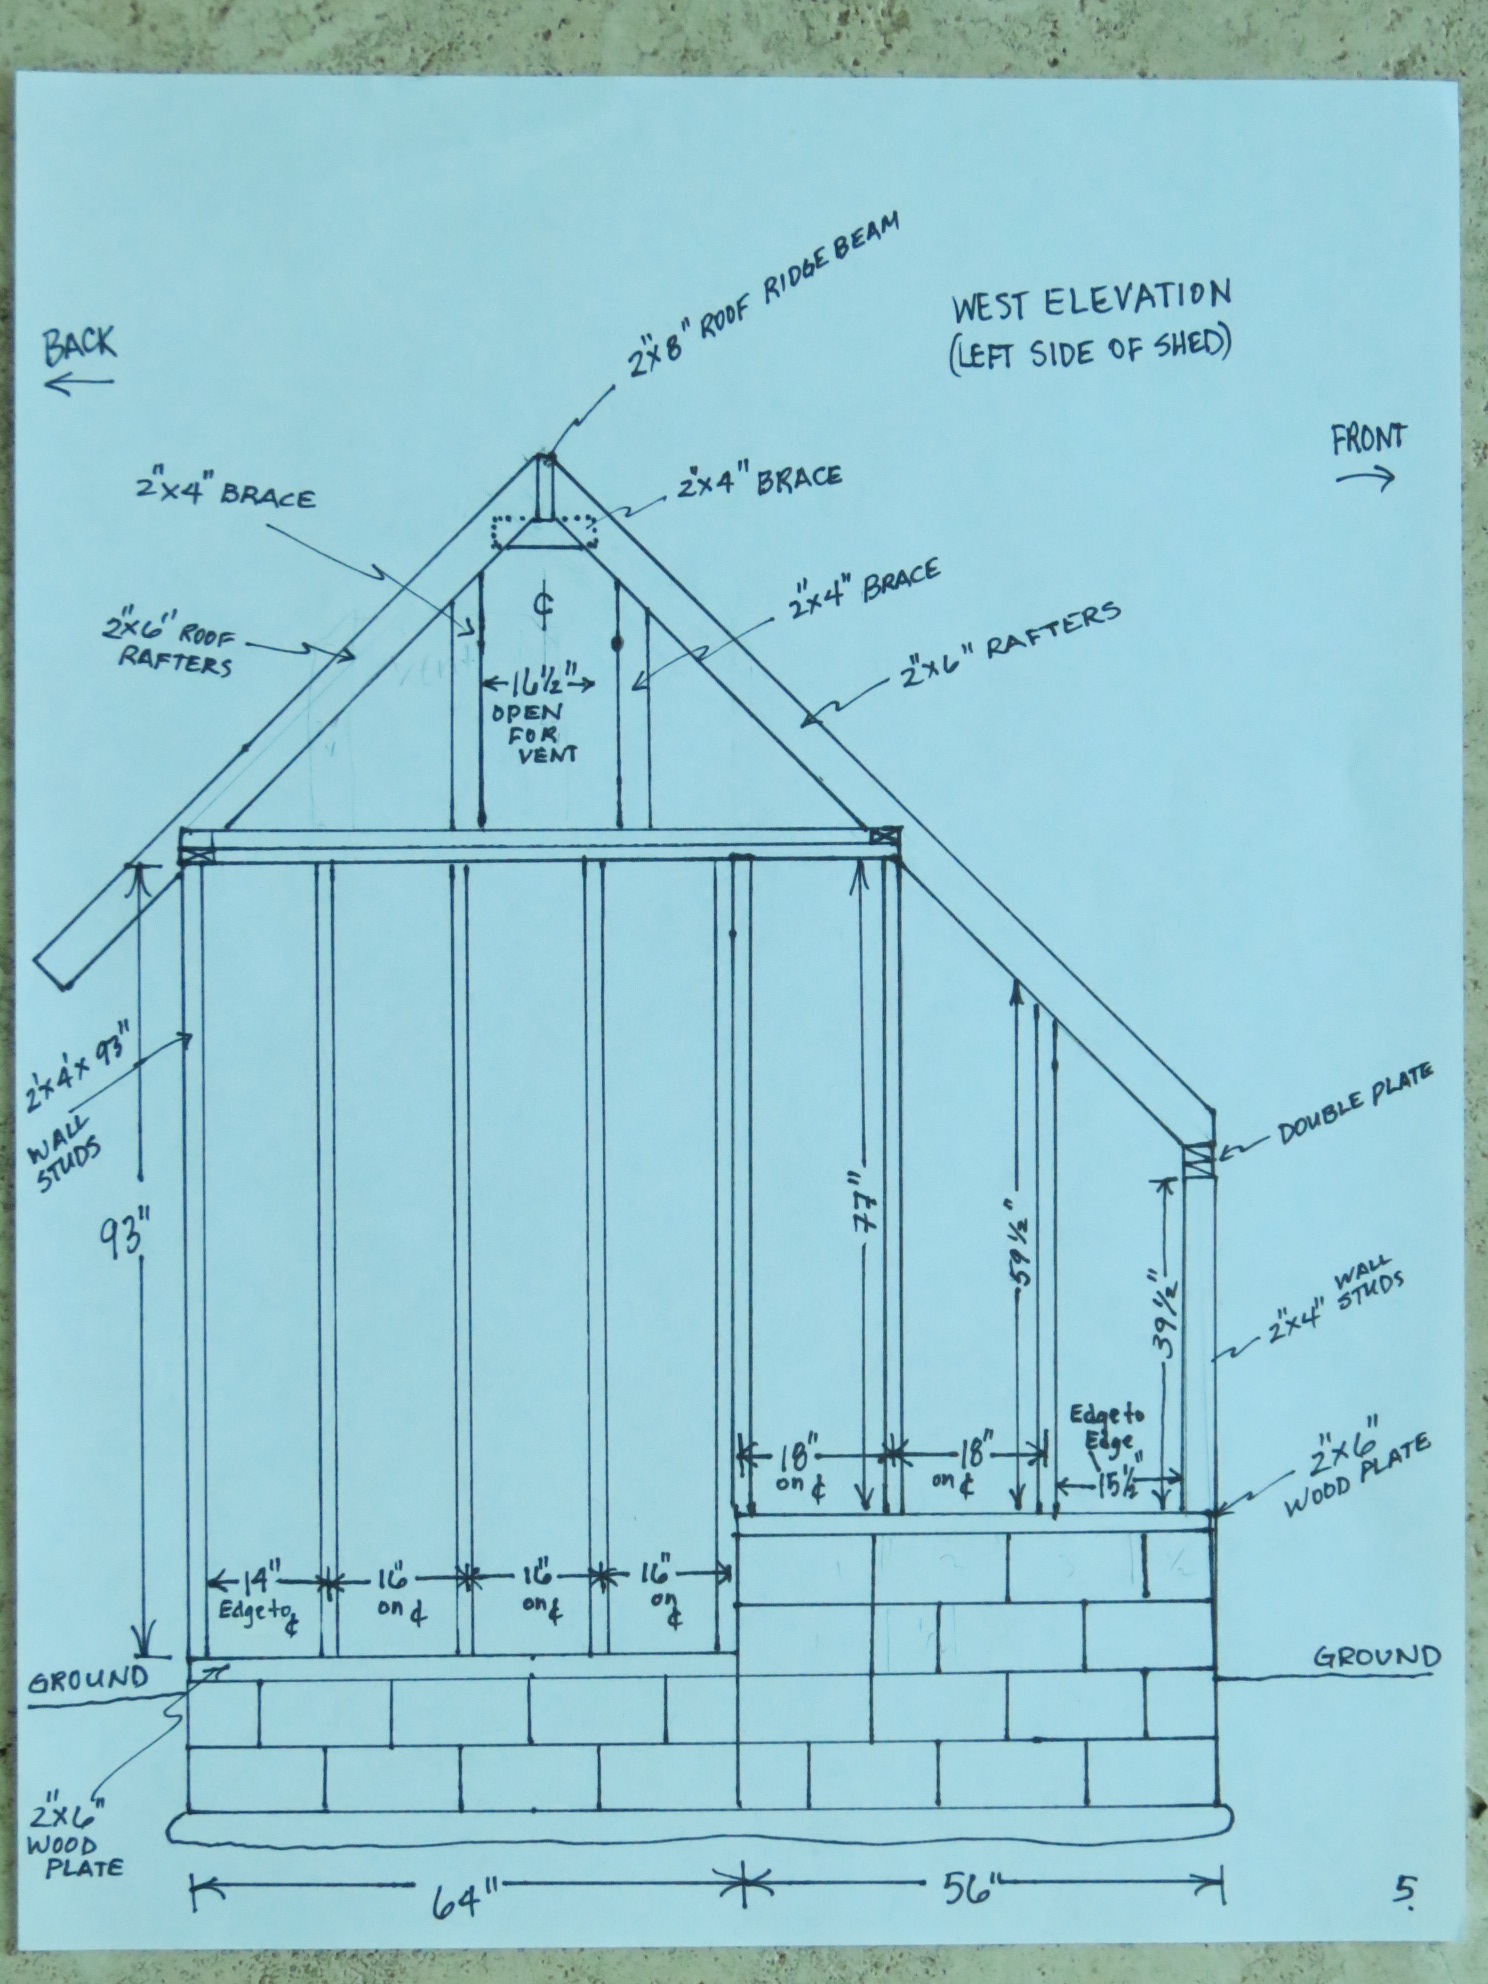 2"x8" ROOF RIDGE BEAM
WEST ELEVATION
(LEFT SIDE OF SHED)
BACK
FRONT
2"x4" BRACE
2"x4" BRACE
2"x4" BRACE
2"x6" ROOF
RAFTERS
2"x6" RAFTERS
℄
16½"
OPEN
FOR
VENT
2'x4'x 93"
WALL
STUDS
93"
77"
59½"
39½"
DOUBLE PLATE
2"x4" WALL
STUDS
Edge to
Edge
15½"
18"
on ℄
18"
on ℄
2"x6"
WOOD PLATE
14"
Edge to
℄
16"
on ℄
16"
on ℄
16"
on
℄
GROUND
GROUND
2"x6"
WOOD
PLATE
64"
56"
5.